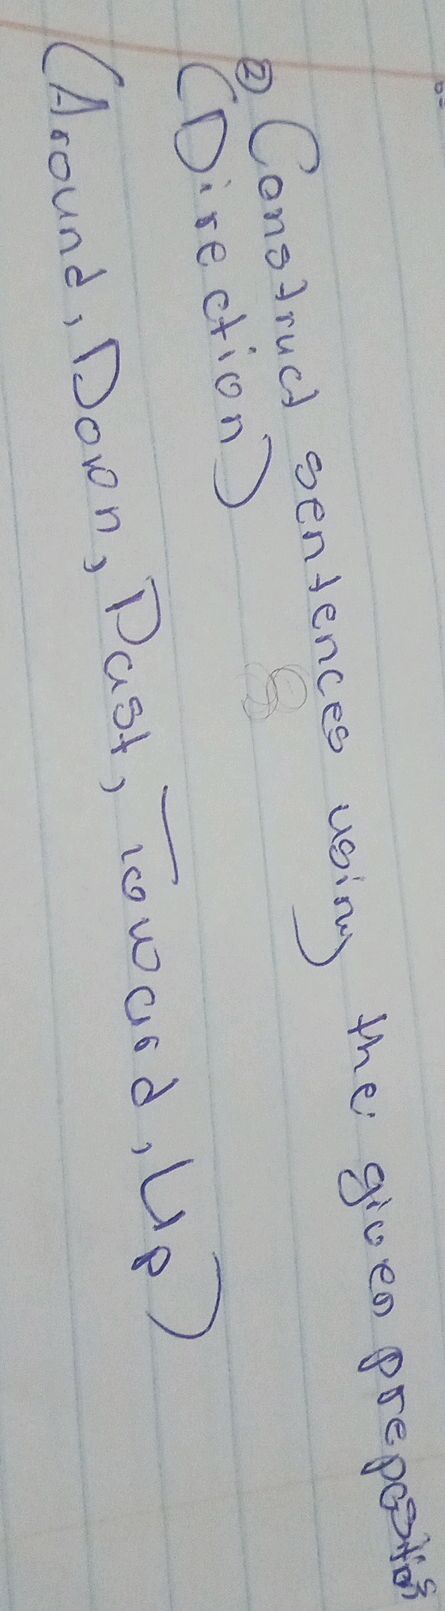 ② Construct sentences using the given preposition
(Direction)
(Around, Down, Past, Toward, Up)